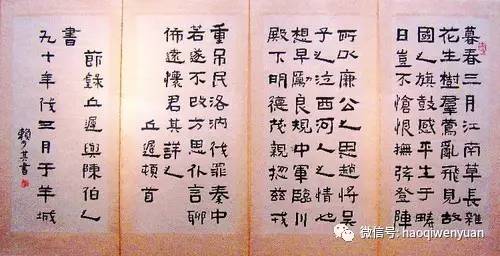 暮春三月江南草長雜
花生樹羣鶯亂飛見故
國之旗鼓感平生于疇
日豈不愴恨撫弦登陴
所以廉公之思趙將吳
子之泣西河人之情也
想早勵良規中軍臨川
殿下明德茂親揔茲戎
重吊民洛汭伐罪秦中
若遂不改方思仆言聊
佈遠懷君其詳之
丘遲頓首
節錄丘遲與陳伯之
書
九十年代三月于羊城
賴少其書
微信号: haoqiwenyuan